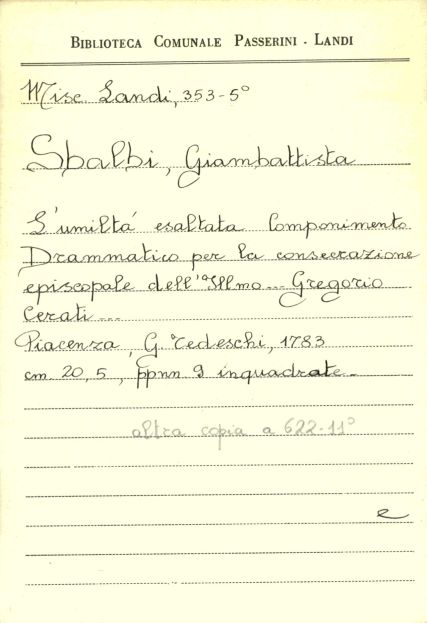 BIBLIOTECA COMUNALE PASSERINI - LANDI
Misc. Landi, 353-5°
Sbalbi, Giambattista
L'umiltá esaltata Componimento
Drammatico per la consecrazione
episcopale dell'Illmo... Gregorio
Cerati...
Piacenza, G. Tedeschi, 1783
cm. 20,5, ppnn 9 inquadrate.
altra copia a 622-11°